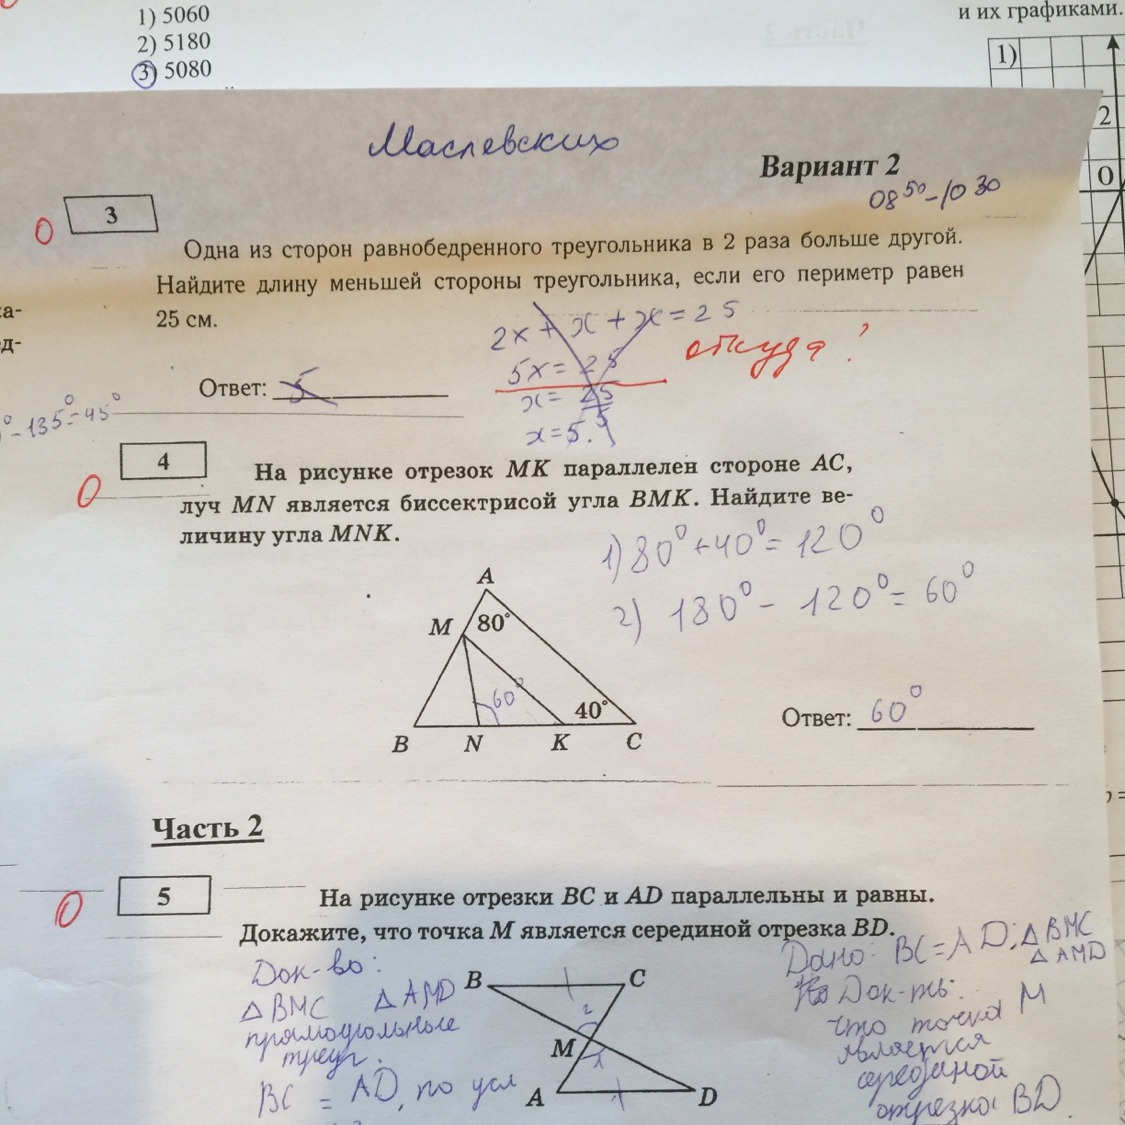 1) 5060
2) 5180
3) 5080
и их графиками.
1)
2
0
Маслевских
Вариант 2
08 50 - 10 30
0
3
Одна из сторон равнобедренного треугольника в 2 раза больше другой.
Найдите длину меньшей стороны треугольника, если его периметр равен
25 см.
2x + x + x = 25
5x = 25
x = 25/5
x = 5.
откуда?
Ответ: 5
- 135° = 45°
0
4
На рисунке отрезок MK параллелен стороне AC,
луч MN является биссектрисой угла BMK. Найдите ве-
личину угла MNK.
1) 80° + 40° = 120°
2) 180° - 120° = 60°
A
M 80°
60°
40°
B N K C
Ответ: 60°
Часть 2
0
5
На рисунке отрезки BC и AD параллельны и равны.
Докажите, что точка M является серединой отрезка BD.
Док-во:
△ BMC △ AMD
прямоугольные
треуг.
BC = AD, по усл
B C
2
M
1
A D
Дано: BC = AD; △ BMC
△ AMD
Док-ть:
что точка M
является
серединой
отрезка BD.